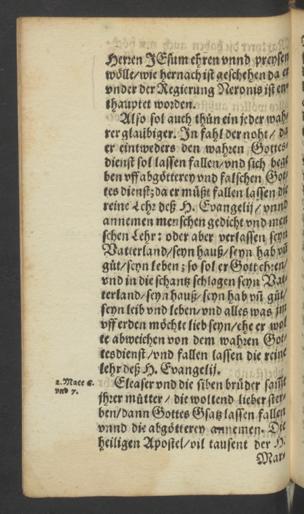 Herren JEsum ehren vnnd preysen
wölle/wie hernach ist geschehen da er
vnder der Regierung Neronis ist ent-
thauptet worden.
Also sol auch thůn ein jeder wah-
rer glaübiger. Jn fahl der noht / da
er eintweders den wahren Gottes
dienst sol lassen fallen/vnd sich bege-
ben vff abgötterey vnd falschen Got-
tes dienst; da er můßt fallen lassen die
reine Lehr deß H. Evangelij / vnnd
annemen menschen gedicht vnd men-
schen Lehr: oder aber verlassen seyn
Vatterland/seyn hauß/seyn hab vñ
gůt/seyn leben; so sol er Gott ehren/
vnd in die schantz schlagen seyn Vat-
terland/seyn hauß/seyn hab vñ gůt/
seyn leib vnd leben/vnd alles was jm
vff erden möchte lieb seyn/ehe er wol-
te abweichen von dem wahren Got-
tesdienst/vnd fallen lassen die reine
lehr deß H. Evangelij.
2. Macc 6.
vnd 7.
Eleaser vnd die siben brüder sampt
jhrer můtter / die woltend lieber ster-
ben/dann Gottes Gsatz lassen fallen
vnnd die abgötterey annemen. Die
heiligen Apostel/vil tausent der H.
Mar-